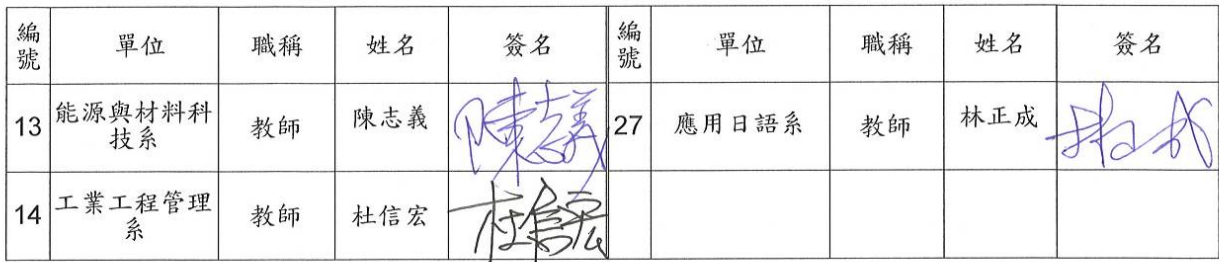 編號 單位 職稱 姓名 簽名 編號 單位 職稱 姓名 簽名
13 能源與材料科技系 教師 陳志義 陳志義 27 應用日語系 教師 林正成 林正成
14 工業工程管理系 教師 杜信宏 杜信宏